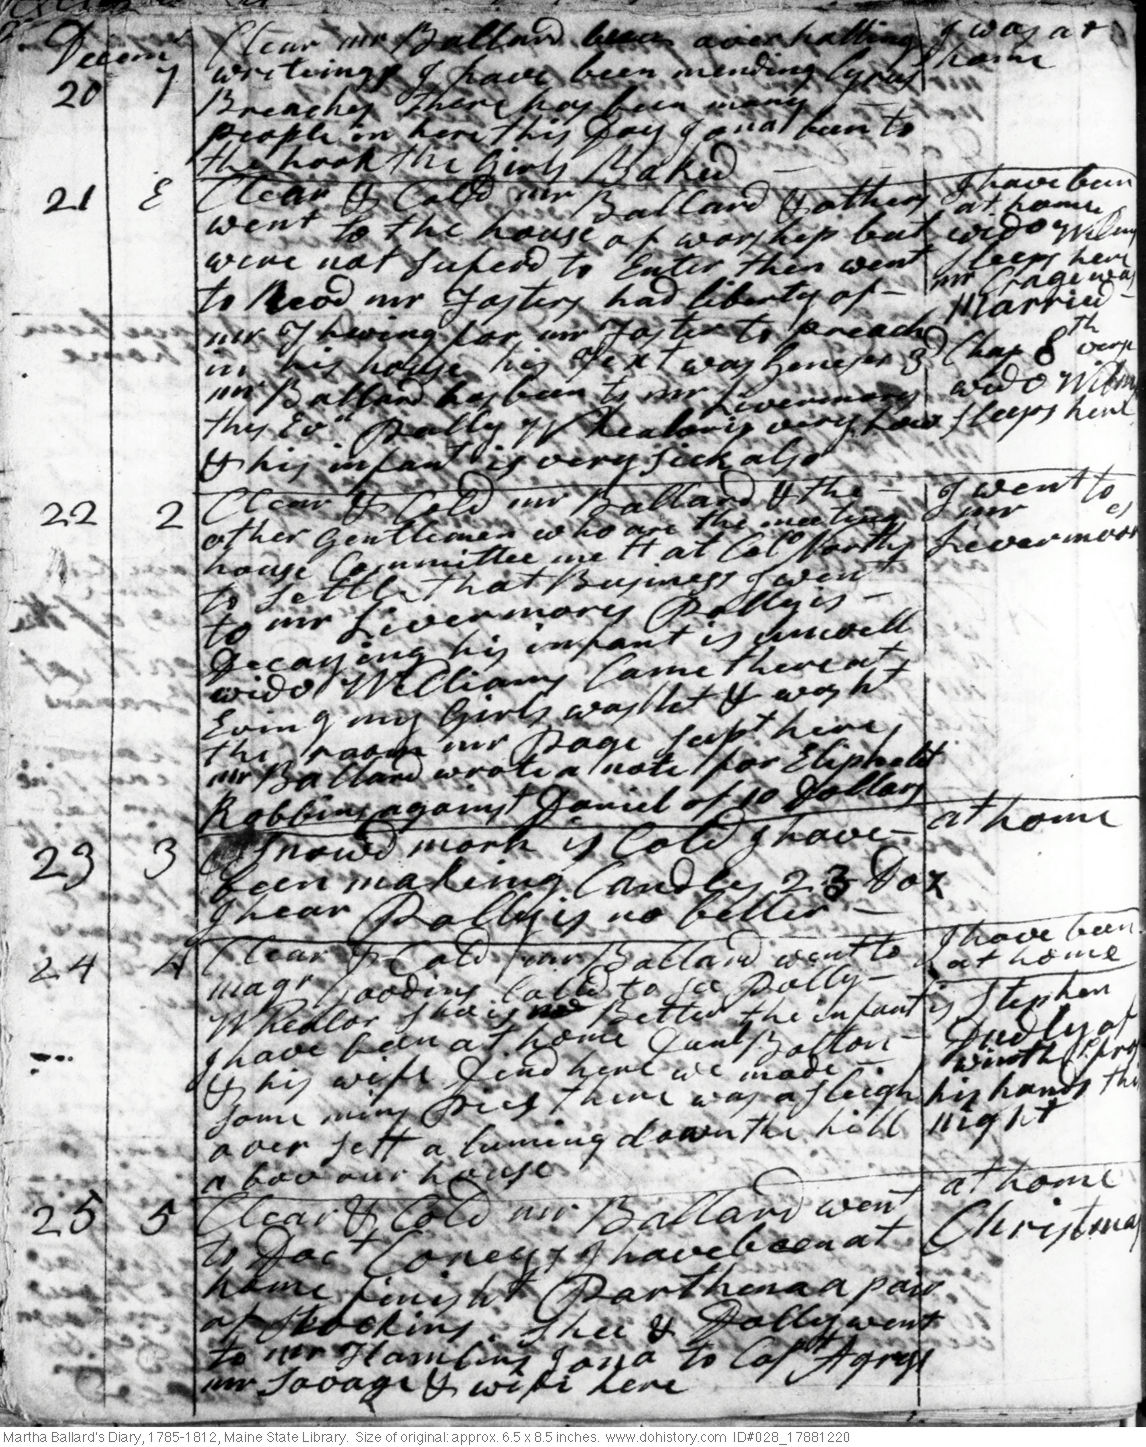 Decem
20 7 Clear mr Ballard been over halling I was at
writeings I have been mending Cyrus home
Breaches there has been many
people in here this Day Jona been to
the hook the Girls Baked
21 E Clear & Cold mr Ballard & others I have been
went to the house of worship but at home
were not Suferd to Enter then went wido Wilms
to Neod mr Fosters had liberty of sleeps here
mr Page was
Married
mr Thwing for mr Foster to preach
in his house his Text was Geneses 3d Chap 8th vers
mr Ballard has been to mr Livermores wido Wilms
this Evn Polly Whealor is very low sleeps here
& his infant is very sick also
22 2 Clear & Cold mr Ballard & the I went to
other Gentlemen who are the meeting mr
house Committee mett at Col Norths Livermores
to settle that Business I went
to mr Livermores Polly is
Decaying his infant is unwell
wido Williams Came there at
Evin g my Girls washt & washt
the room mr Page slept here
mr Ballard wrote a note for Eliphelet
Robbins against Daniel of 10 Dollars
23 3 Snowd morn is Cold I have at home
been making Candles 23 Doz
I hear Polly is no better
24 4 Clear & Cold mr Ballard went to I have been
magr Goodins Calld to see Polly at home
Whealor Shee is no Better the infant is Stephen
I have been at home Dudly of
& his wife Dind here we made
some mins Pies there was a sleigh his hands this
over sett a Comeing down the hill night
a bov our house
25 5 Clear & Cold mr Ballard went at home
to Doct Coneys I have been at Christmas
home finisht Parthena a pair
of Stockins. Shee & Dolly went
to mr Hamlins Jona to Capt
mr Savage & wife here
Martha Ballard's Diary, 1785-1812, Maine State Library. Size of original: approx. 6.5 x 8.5 inches. www.dohistory.com ID#028_17881220